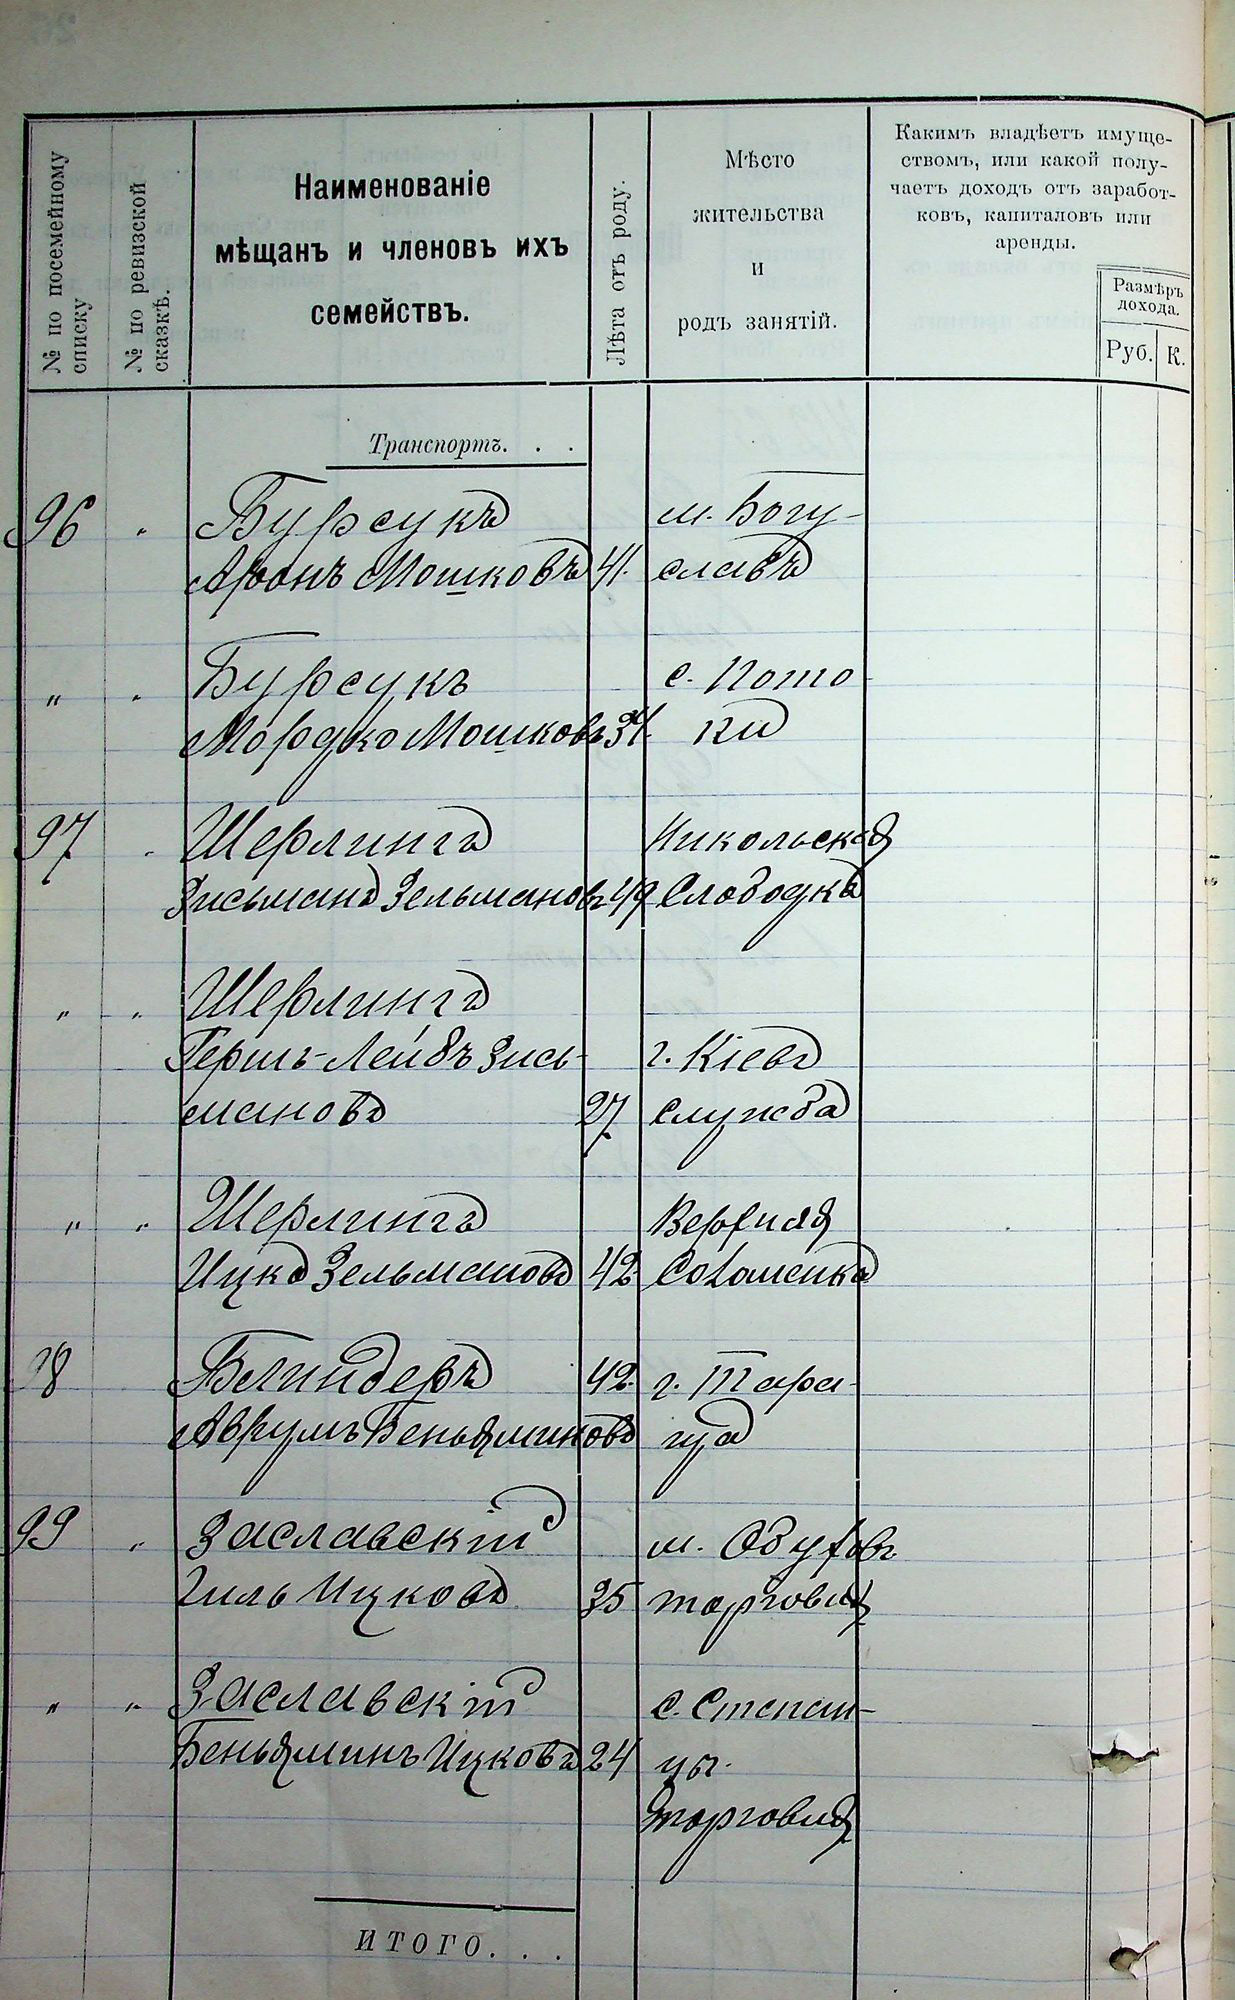 № по посемейному списку
№ по ревизской сказкѣ.
Наименованіе
мѣщанъ и членовъ ихъ
семействъ.
Лѣта отъ роду.
Мѣсто
жительства
и
родъ занятій.
Какимъ владѣетъ имуще-
ствомъ, или какой полу-
чаетъ доходъ отъ заработ-
ковъ, капиталовъ или
аренды.
Размѣръ
дохода.
Руб. К.
Транспортъ. . .
96 " Бурсукъ м. Богу-
Аронъ Мошковъ 41. славъ
" " Бурсукъ с. Пото-
Мордко Мошковъ 34. ки
97 " Шерлингъ Никольская
Зисьманъ Зельмановъ 49 Слободка
" " Шерлингъ
Гершъ-Лейбъ Зись- г. Кіевъ
мановъ 27 служба
" " Шерлингъ Верхняя
Ицко Зельмановъ 42 Соломенка
98 Блиндеръ 42. г. Тара-
Аврумъ Беньяминовъ ща
99 " Заславскій м. Обуховъ
Гиль Ицковъ 35 торговля
" " Заславскій с. Степан-
Беньяминъ Ицковъ 24 цы.
торговля
ИТОГО. . .